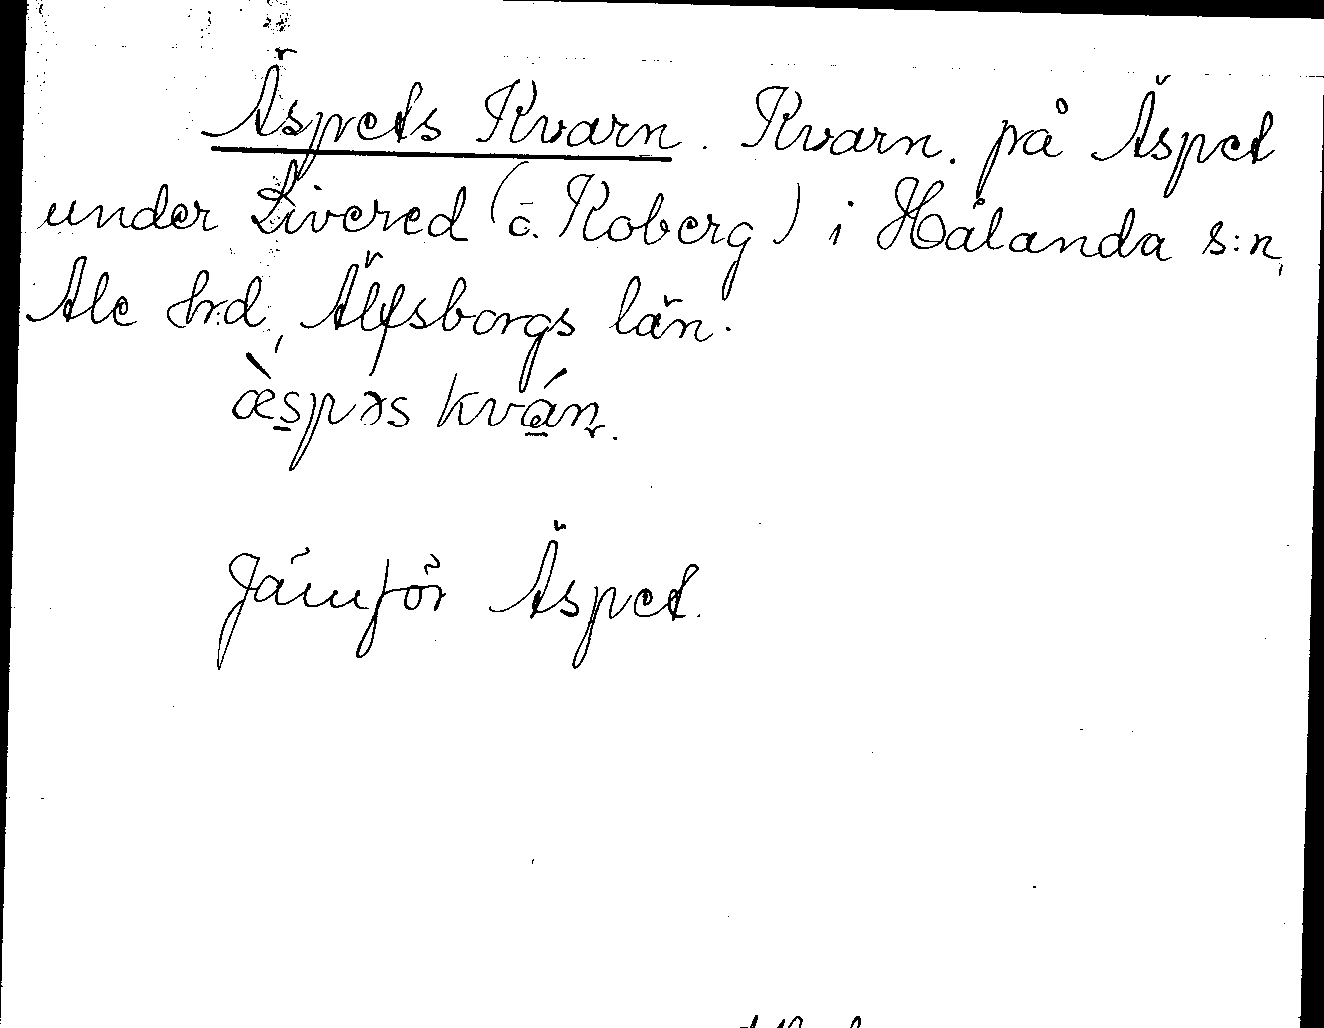 Äspets Kvarn. Kvarn. på Äspet
under Livered (o. Koberg) i Hålanda s:n,
Ale hrd, Älfsborgs län.
æ̀spəs kván.
Jämför Äspet.